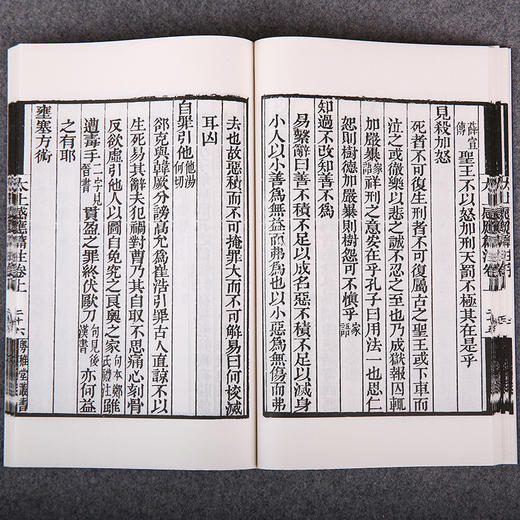 薛宣傳 聖王不以怒加刑天罰不極其在是乎
見殺加怒
死者不可復生刑者不可復屬古之聖王或下車而
泣之或徹樂以悲之誠不忍之至也乃成獄報囚輒
加嚴暴 祥刑之意矣在乎孔子曰用法一也思仁
恕則樹德加嚴暴則樹怨可不慎乎家語
知過不改知善不為
易繫辭善不積不足以成名惡不積不足以滅身
小人以小善為無益而弗為也以小惡為無傷而弗
去也故惡積而不可掩罪大而不可解易曰何校滅
耳凶
自罪引他他湯何切
郤克與韓厥分謗高允為崔浩引罪古人直諒不以
生死易其辭夫犯禍對曹乃其自取不思痛心刻骨
反欲虛引他人以圖自免究之 之家 雖
遭毒手二字見晉書貫盈之罪終伏歐刀見後漢書亦何益
之有耶
壅塞方術
太上感應篇註卷上 二十六 粵雅堂叢書